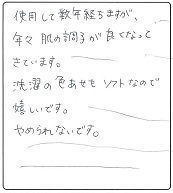 使用して数年経ちますが、
年々 肌の調子が良くなって
きています。
洗濯の色あせも ソフトなので
嬉しいです。
やめられないです。